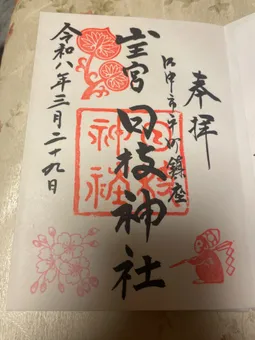 奉拝
町鎮座
山王宮
日枝神社
令和八年三月二十九日
日枝
神社